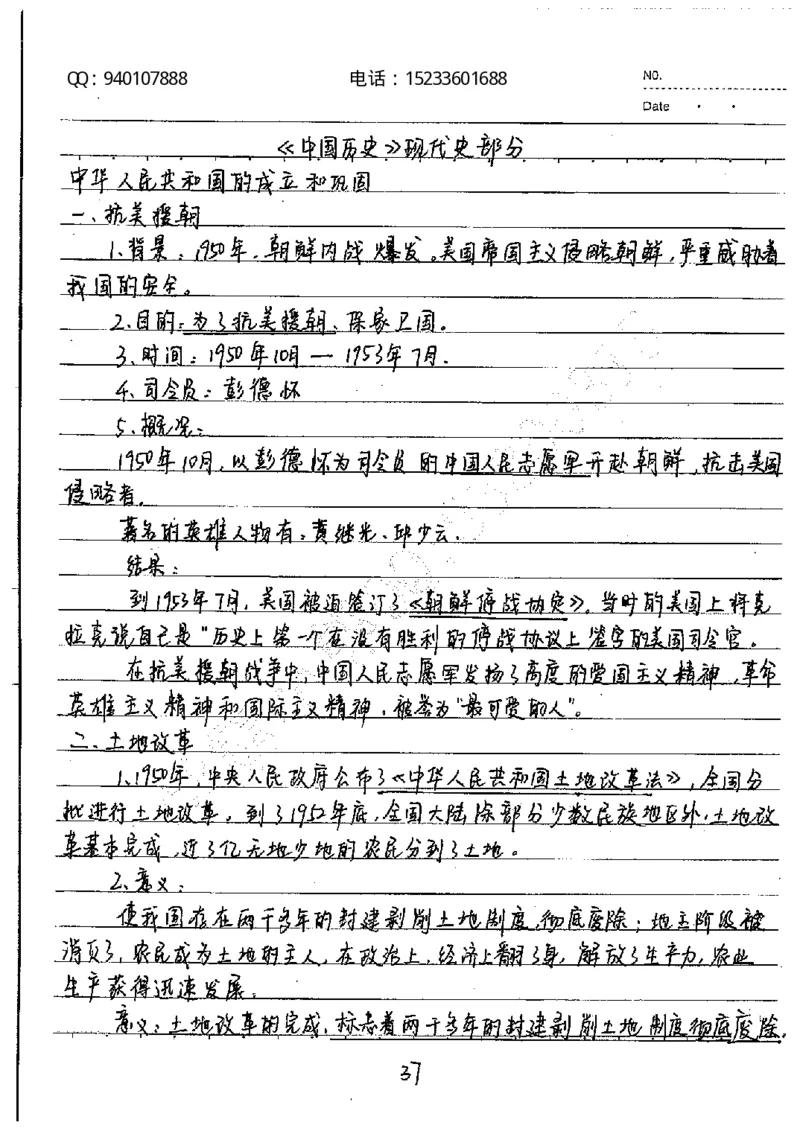 QQ：940107888 电话：15233601688 NO.
Date
《中国历史》现代史部分
中华人民共和国的成立和巩固
一、抗美援朝
1.背景：1950年，朝鲜内战爆发。美国帝国主义侵略朝鲜，严重威胁着
我国的安全。
2.目的：为了抗美援朝、保家卫国。
3.时间：1950年10月 — 1953年7月.
4.司令员：彭德怀
5.概况：
1950年10月，以彭德怀为司令员的中国人民志愿军开赴朝鲜，抗击美国
侵略者.
著名的英雄人物有：黄继光、邱少云.
结果：
到1953年7月，美国被迫签订了《朝鲜停战协定》。当时的美国上将克
拉克说自己是“历史上第一个在没有胜利的停战协议上签字的美国司令官。
在抗美援朝战争中，中国人民志愿军发扬了高度的爱国主义精神，革命
英雄主义精神和国际主义精神，被誉为“最可爱的人”。
二、土地改革
1.1950年，中央人民政府公布了《中华人民共和国土地改革法》，全国分
批进行土地改革。到了1952年底，全国大陆除部分少数民族地区外，土地改
革基本完成，近3亿无地少地的农民分到了土地。
2.意义：
使我国存在两千多年的封建剥削土地制度，彻底废除；地主阶级被
消灭了，农民成为土地的主人，在政治上，经济上翻了身，解放了生产力，农业
生产获得迅速发展。
意义：土地改革的完成，标志着两千多年的封建剥削土地制度彻底废除.
37